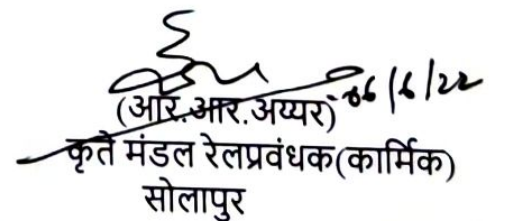 (आर.आर.अय्यर) 06/6/22
कृते मंडल रेलप्रवंधक(कार्मिक)
सोलापुर